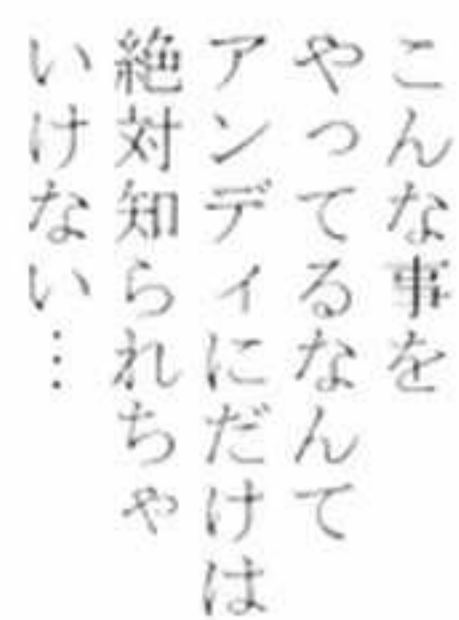 こんな事を
やってるなんて
アンディにだけは
絶対知られちゃ
いけない…